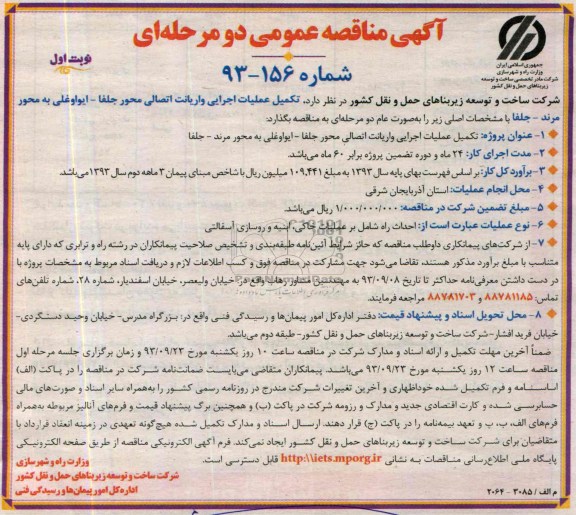 آگهی مناقصه عمومی دو مرحله‌ای
شماره ۱۵۶-۹۳
نوبت اول
جمهوری اسلامی ایران
وزارت راه و شهرسازی
شرکت مادر تخصصی ساخت و توسعه
زیربناهای حمل و نقل کشور
شرکت ساخت و توسعه زیربناهای حمل و نقل کشور در نظر دارد، تکمیل عملیات اجرایی واریانت اتصالی محور جلفا - ایواوغلی به محور
مرند - جلفا با مشخصات اصلی زیر را به‌صورت عام دو مرحله‌ای به مناقصه بگذارد:
۱- عنوان پروژه: تکمیل عملیات اجرایی واریانت اتصالی محور جلفا - ایواوغلی به محور مرند - جلفا
۲- مدت اجرای کار: ۲۴ ماه و دوره تضمین پروژه برابر ۶۰ ماه می‌باشد.
۳- برآورد کل کار: بر اساس فهرست بهای پایه سال ۱۳۹۳ به مبلغ ۱۰۹,۴۴۱ میلیون ریال با شاخص مبنای پیمان ۳ ماهه دوم سال ۱۳۹۳ می‌باشد.
۴- محل انجام عملیات: استان آذربایجان شرقی
۵- مبلغ تضمین شرکت در مناقصه: ۱/۰۰۰/۰۰۰/۰۰۰ ریال می‌باشد.
۶- نوع عملیات عبارت است از: احداث راه شامل بر عملیات خاکی، ابنیه و روسازی آسفالتی
۷- از شرکت‌های پیمانکاری داوطلب مناقصه که حائز شرایط آئین‌نامه طبقه‌بندی و تشخیص صلاحیت پیمانکاران در رشته راه و ترابری که دارای پایه
متناسب با مبلغ برآورد مذکور هستند، تقاضا می‌شود جهت مشارکت در مناقصه فوق و کسب اطلاعات لازم و دریافت اسناد مربوط به مشخصات پروژه با
در دست داشتن معرفی‌نامه حداکثر تا تاریخ ۹۳/۰۹/۰۸ به مهندسین مشاور رهاب واقع در: خیابان ولیعصر، خیابان اسفندیار، شماره ۲۸، شماره تلفن‌های
تماس: ۸۸۷۸۱۱۸۵ و ۸۸۷۸۱۷۰۳ مراجعه فرمایند.
۸- محل تحویل اسناد و پیشنهاد قیمت: دفتر اداره کل امور پیمان‌ها و رسیدگی فنی واقع در: بزرگراه مدرس- خیابان وحید دستگردی-
خیابان فرید افشار- شرکت ساخت و توسعه زیربناهای حمل و نقل کشور- طبقه دوم می‌باشد.
ضمناً آخرین مهلت تکمیل و ارائه اسناد و مدارک شرکت در مناقصه ساعت ۱۰ روز یکشنبه مورخ ۹۳/۰۹/۲۳ و زمان برگزاری جلسه مرحله اول
مناقصه ساعت ۱۲ روز یکشنبه مورخ ۹۳/۰۹/۲۳ می‌باشد. پیمانکاران متقاضی می‌بایست ضمانت‌نامه شرکت در مناقصه را در پاکت (الف)
اساسنامه و فرم تکمیل شده خوداظهاری و آخرین تغییرات شرکت مندرج در روزنامه رسمی کشور را به‌همراه سایر اسناد و صورت‌های مالی
حسابرسی شده و کارت اقتصادی جدید و مدارک و رزومه شرکت در پاکت (ب) و همچنین برگ پیشنهاد قیمت و فرم‌های آنالیز مربوطه به‌همراه
فرم‌های الف، ب، پ و تعهد بیمه‌نامه را در پاکت (ج) قرار دهند. ارسال اسناد و مدارک تکمیل شده هیچ‌گونه تعهدی در زمینه انعقاد قرارداد با
متقاضیان برای شرکت ساخت و توسعه زیربناهای حمل و نقل کشور ایجاد نمی‌کند. فرم آگهی الکترونیکی مناقصه از طریق صفحه الکترونیکی
پایگاه ملی اطلاع‌رسانی مناقصات به نشانی http:\\iets.mporg.ir قابل دسترسی است.
وزارت راه و شهرسازی
شرکت ساخت و توسعه زیربناهای حمل و نقل کشور
اداره کل امور پیمان‌ها و رسیدگی فنی
م الف / ۳۰۸۵ - ۲۰۶۴